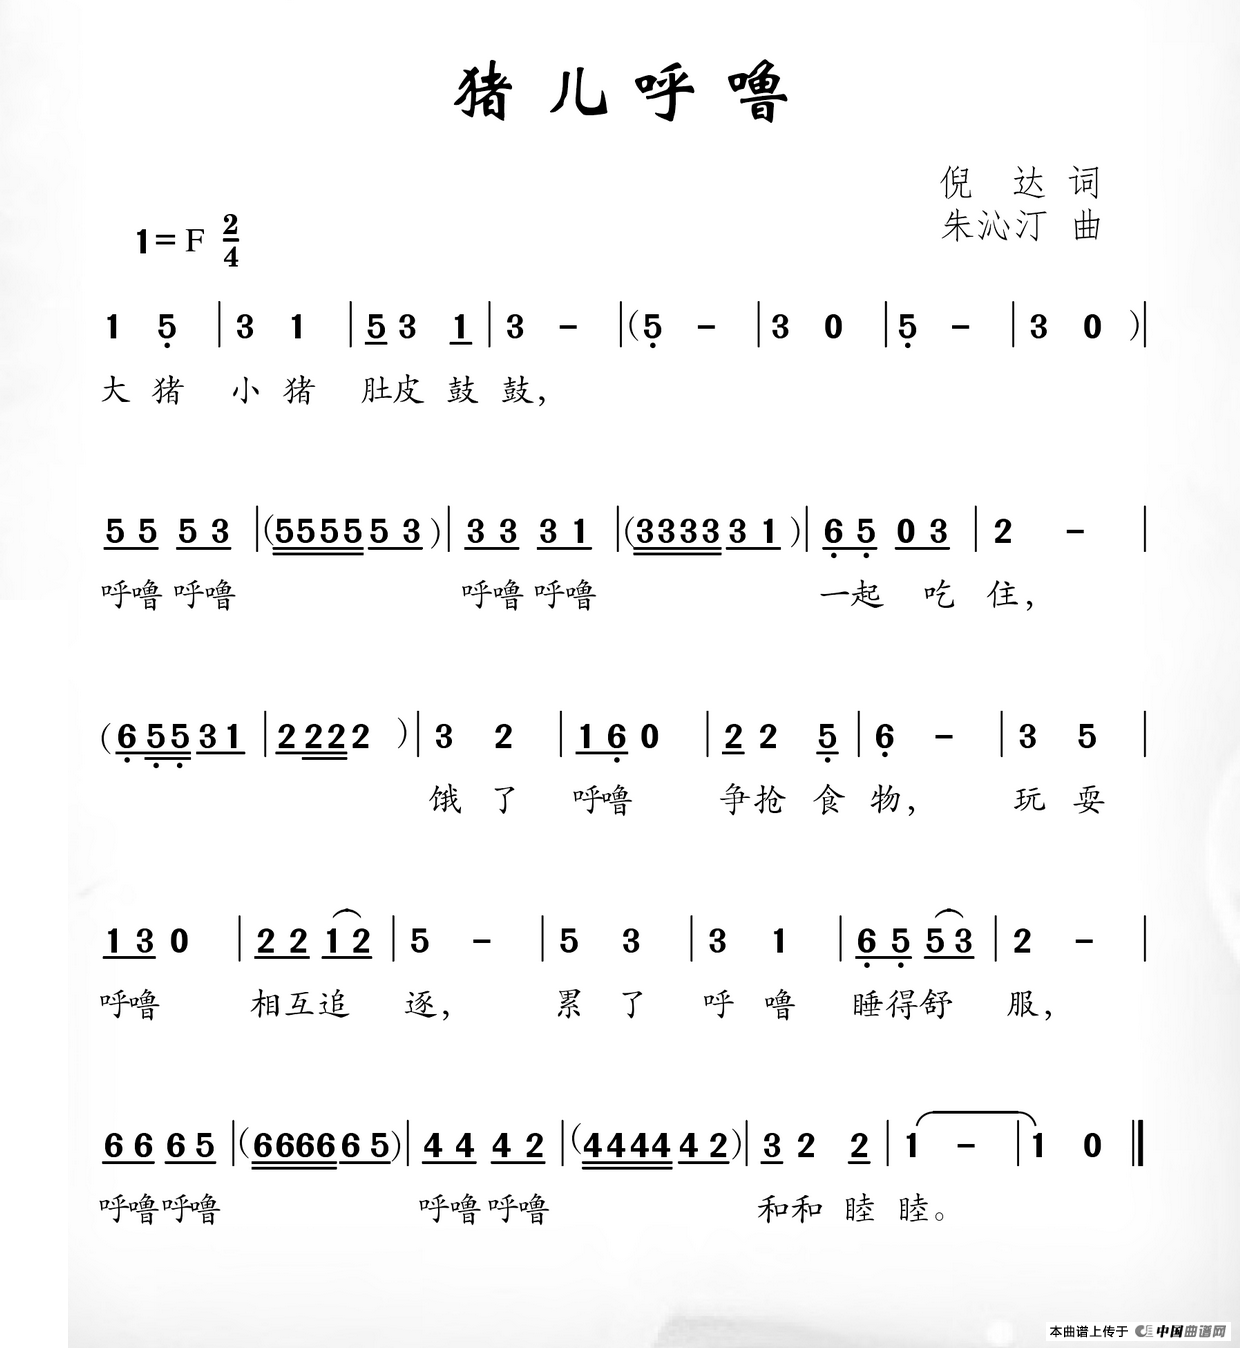 猪儿呼噜
倪 达 词
朱沁汀 曲
1=F 2/4
1 5 | 3 1 | 5 3 1 | 3 - | (5 - | 3 0 | 5 - | 3 0 )|
大 猪 小 猪 肚皮 鼓 鼓，
5 5 5 3 |(5 5 5 5 5 3 )| 3 3 3 1 |(3 3 3 3 3 1 )| 6 5 0 3 | 2 - |
呼噜 呼噜 呼噜 呼噜 一起 吃 住，
(6 5 5 3 1 | 2 2 2 2 )| 3 2 | 1 6 0 | 2 2 5 | 6 - | 3 5 |
饿 了 呼噜 争抢 食 物， 玩 耍
1 3 0 | 2 2 1 2 | 5 - | 5 3 | 3 1 | 6 5 5 3 | 2 - |
呼噜 相互追 逐， 累 了 呼 噜 睡得舒 服，
6 6 6 5 |(6 6 6 6 6 5)| 4 4 4 2 |(4 4 4 4 4 2)| 3 2 2 | 1 - | 1 0 ‖
呼噜呼噜 呼噜 呼噜 和和 睦 睦。
本曲谱上传于 中国曲谱网